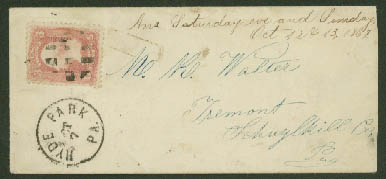 Ans Saturday eve and Sunday
Oct 12 & 13, 186
Walter
Tremont
Schuylkill Co
Pa
HYDE PARK PA.